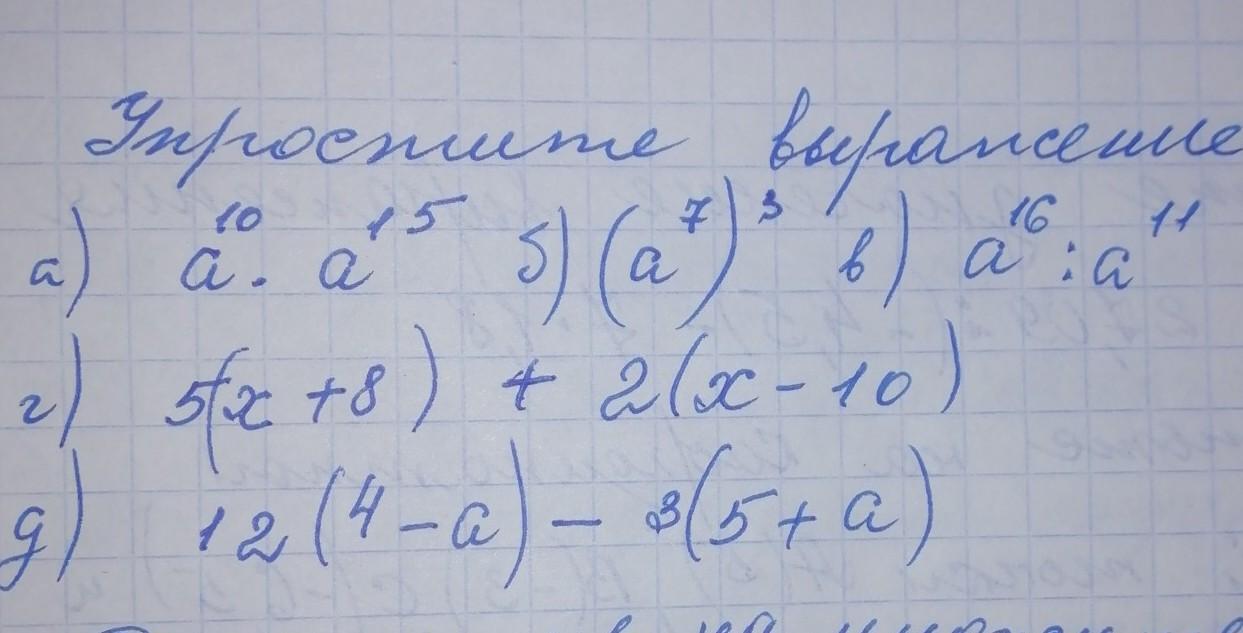 Упростите выражение
а) a¹⁰ . a¹⁵ б) (a⁷)³ в) a¹⁶ : a¹¹
г) 5(x + 8) + 2(x - 10)
д) 12(4 - a) - 3(5 + a)